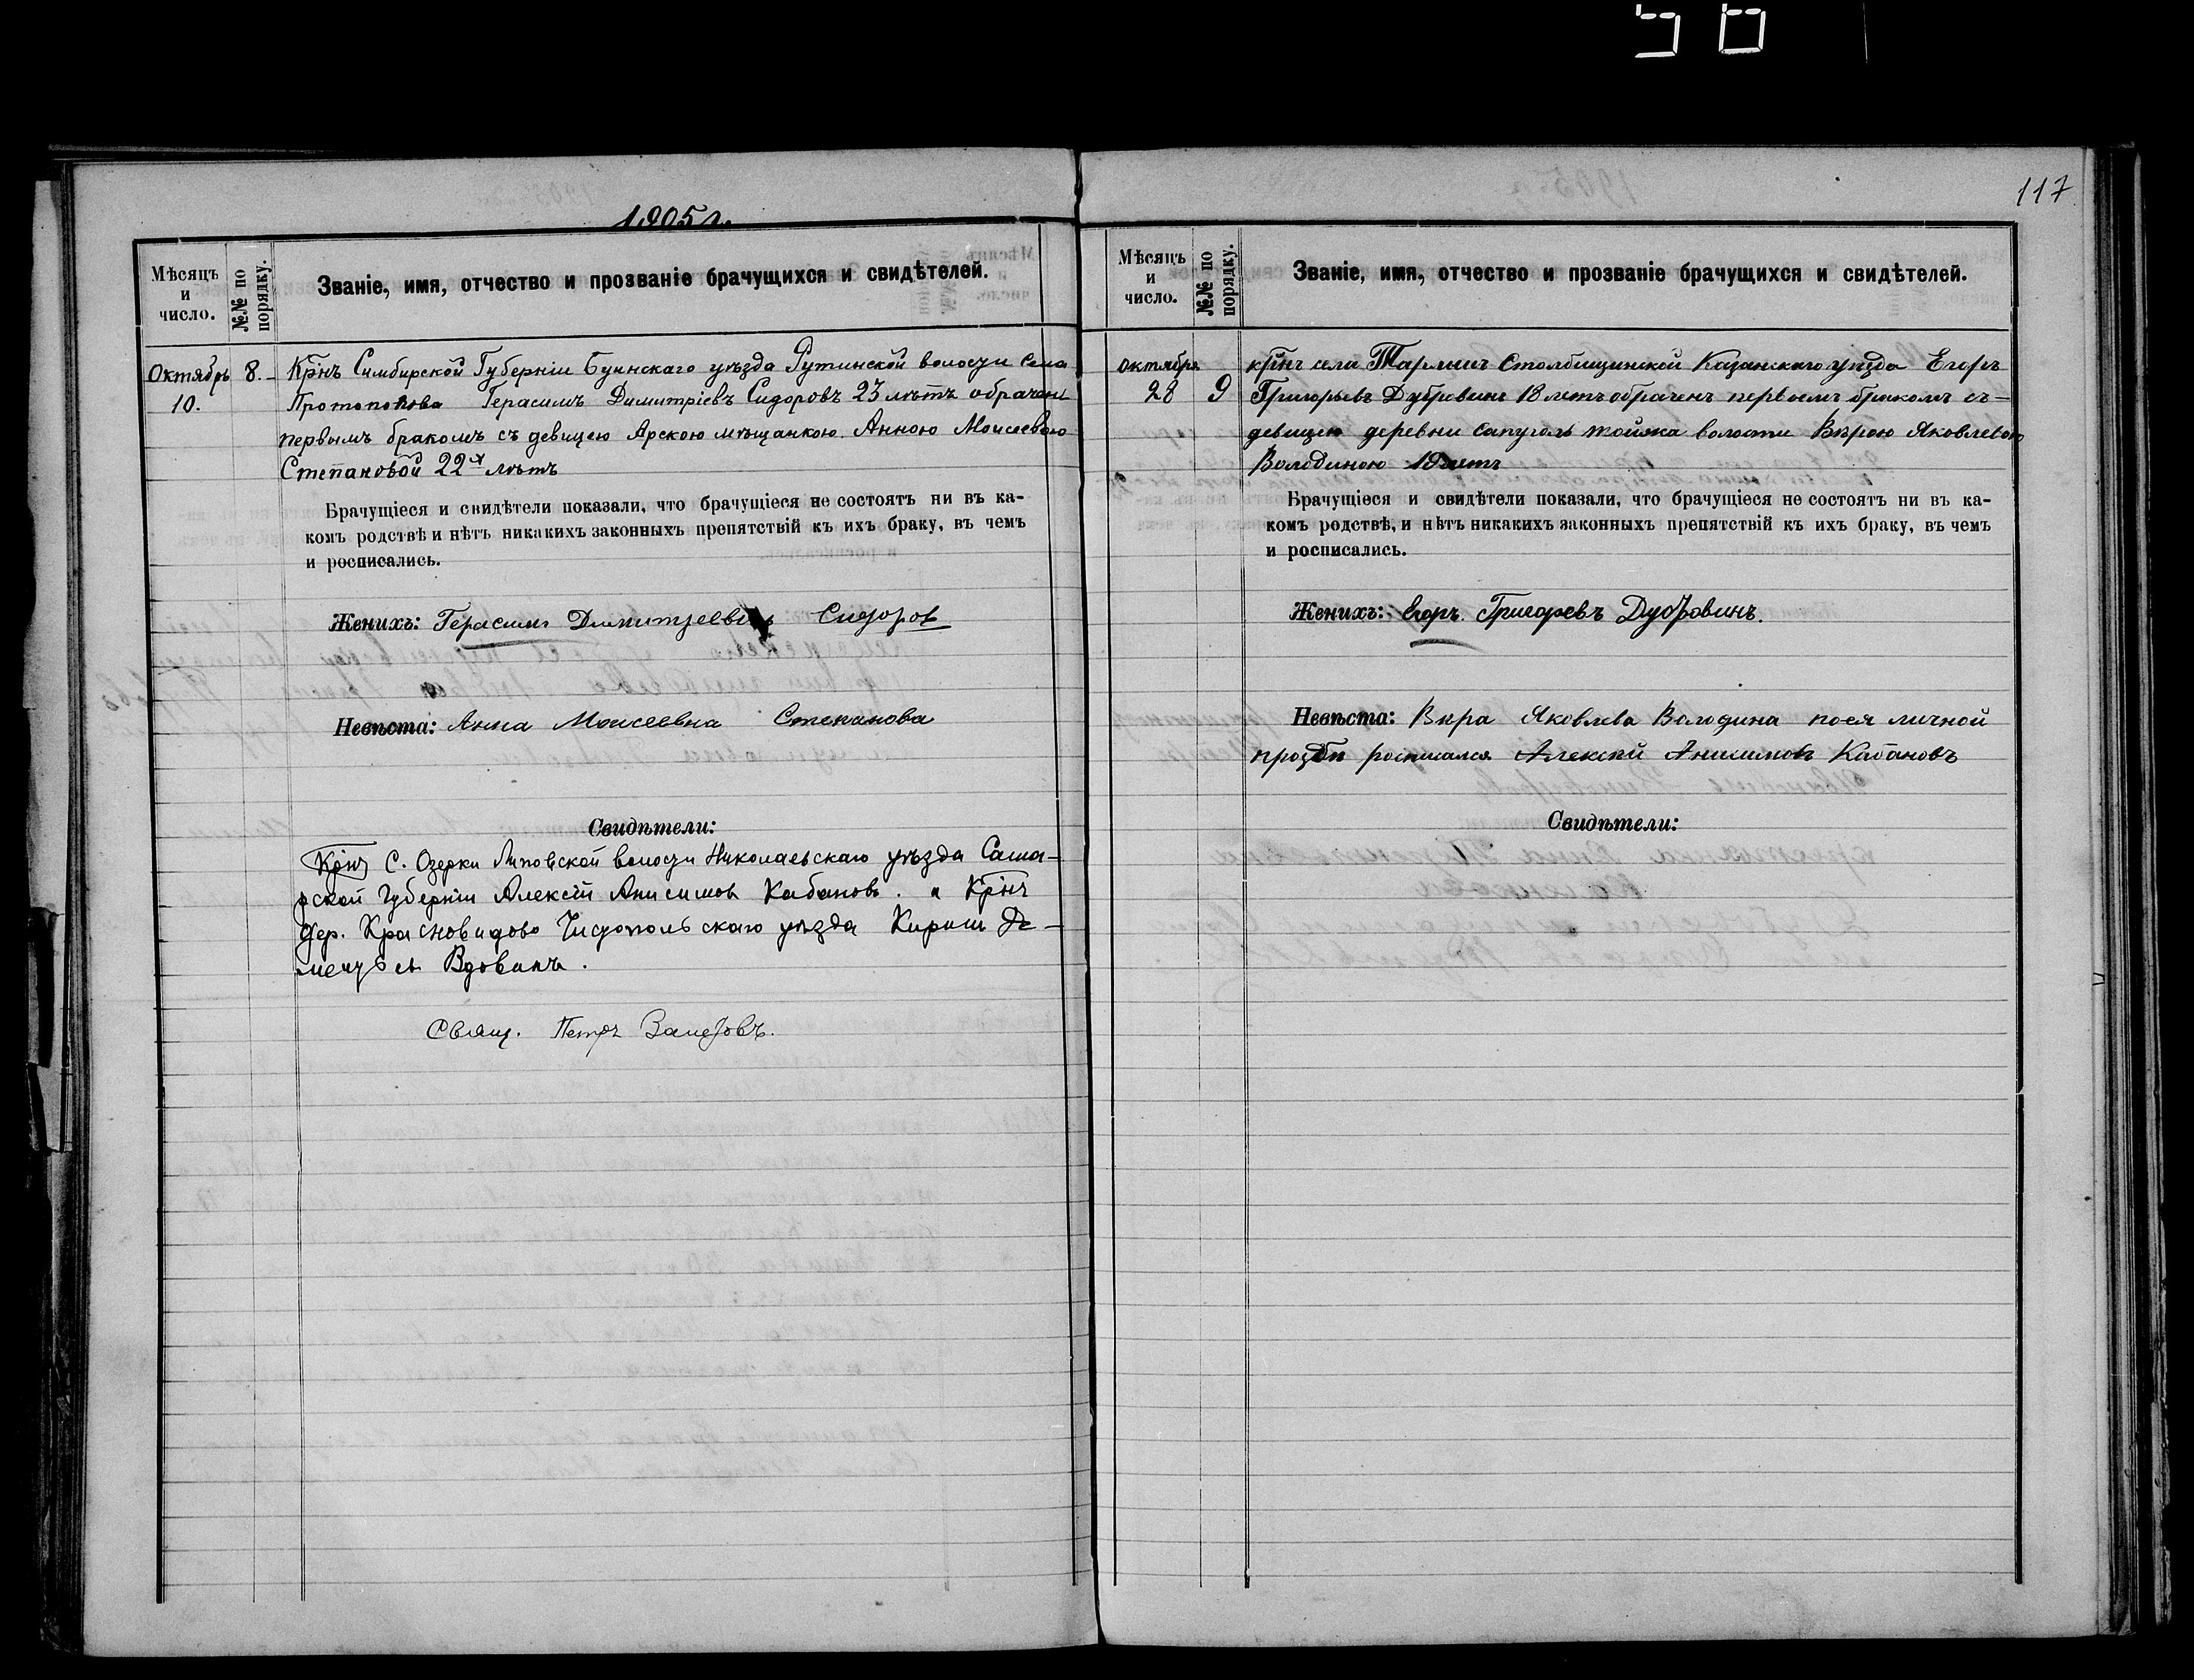 117
1905 г.
Мѣсяцъ и число.
№№ по порядку.
Званіе, имя, отчество и прозваніе брачущихся и свидѣтелей.
Октябрь 8. Крнъ Симбирской Губерніи Буинскаго уѣзда Рутинской волости села
10. Протопопова Герасимъ Димитріевъ Сидоровъ 23 лѣтъ обрачен
первымъ бракомъ съ девицею Арскою мѣщанкою Анною Моисеевою
Степановой 22х лѣтъ
Брачущіеся и свидѣтели показали, что брачущіеся не состоятъ ни въ ка-
комъ родствѣ и нѣтъ никакихъ законныхъ препятствій къ ихъ браку, въ чемъ
и росписались.
Женихъ: Герасимъ Сидоров
Невѣста: Анна Моисеевна Степанова
Свидѣтели:
Крнъ С. Озерки Липовской волости Николаевскаго уѣзда Сама-
рской Губерніи Алексѣй Анисимов Кабановъ. и Крнъ
дер. Красновидово Чистопольскаго уѣзда Вдовинъ.
Свящ. Петръ
Мѣсяцъ и число.
№№ по порядку.
Званіе, имя, отчество и прозваніе брачущихся и свидѣтелей.
октября крнъ села Столбищинской Казанскаго уѣзда Егоръ
28 9 Григорьевъ Дубровинъ 18 летъ обраченъ первымъ бракомъ съ
девицею деревни волости Вѣрою Яковлевою
Володиною 19 летъ
Брачущіеся и свидѣтели показали, что брачущіеся не состоятъ ни въ ка-
комъ родствѣ, и нѣтъ никакихъ законныхъ препятствій къ ихъ браку, въ чемъ
и росписались.
Женихъ: Егоръ Григоревъ Дубровинъ.
Невѣста: Вѣра Яковлева Володина поея личной
прозбѣ росписался Алексѣй Анисимовъ Кабановъ
Свидѣтели: